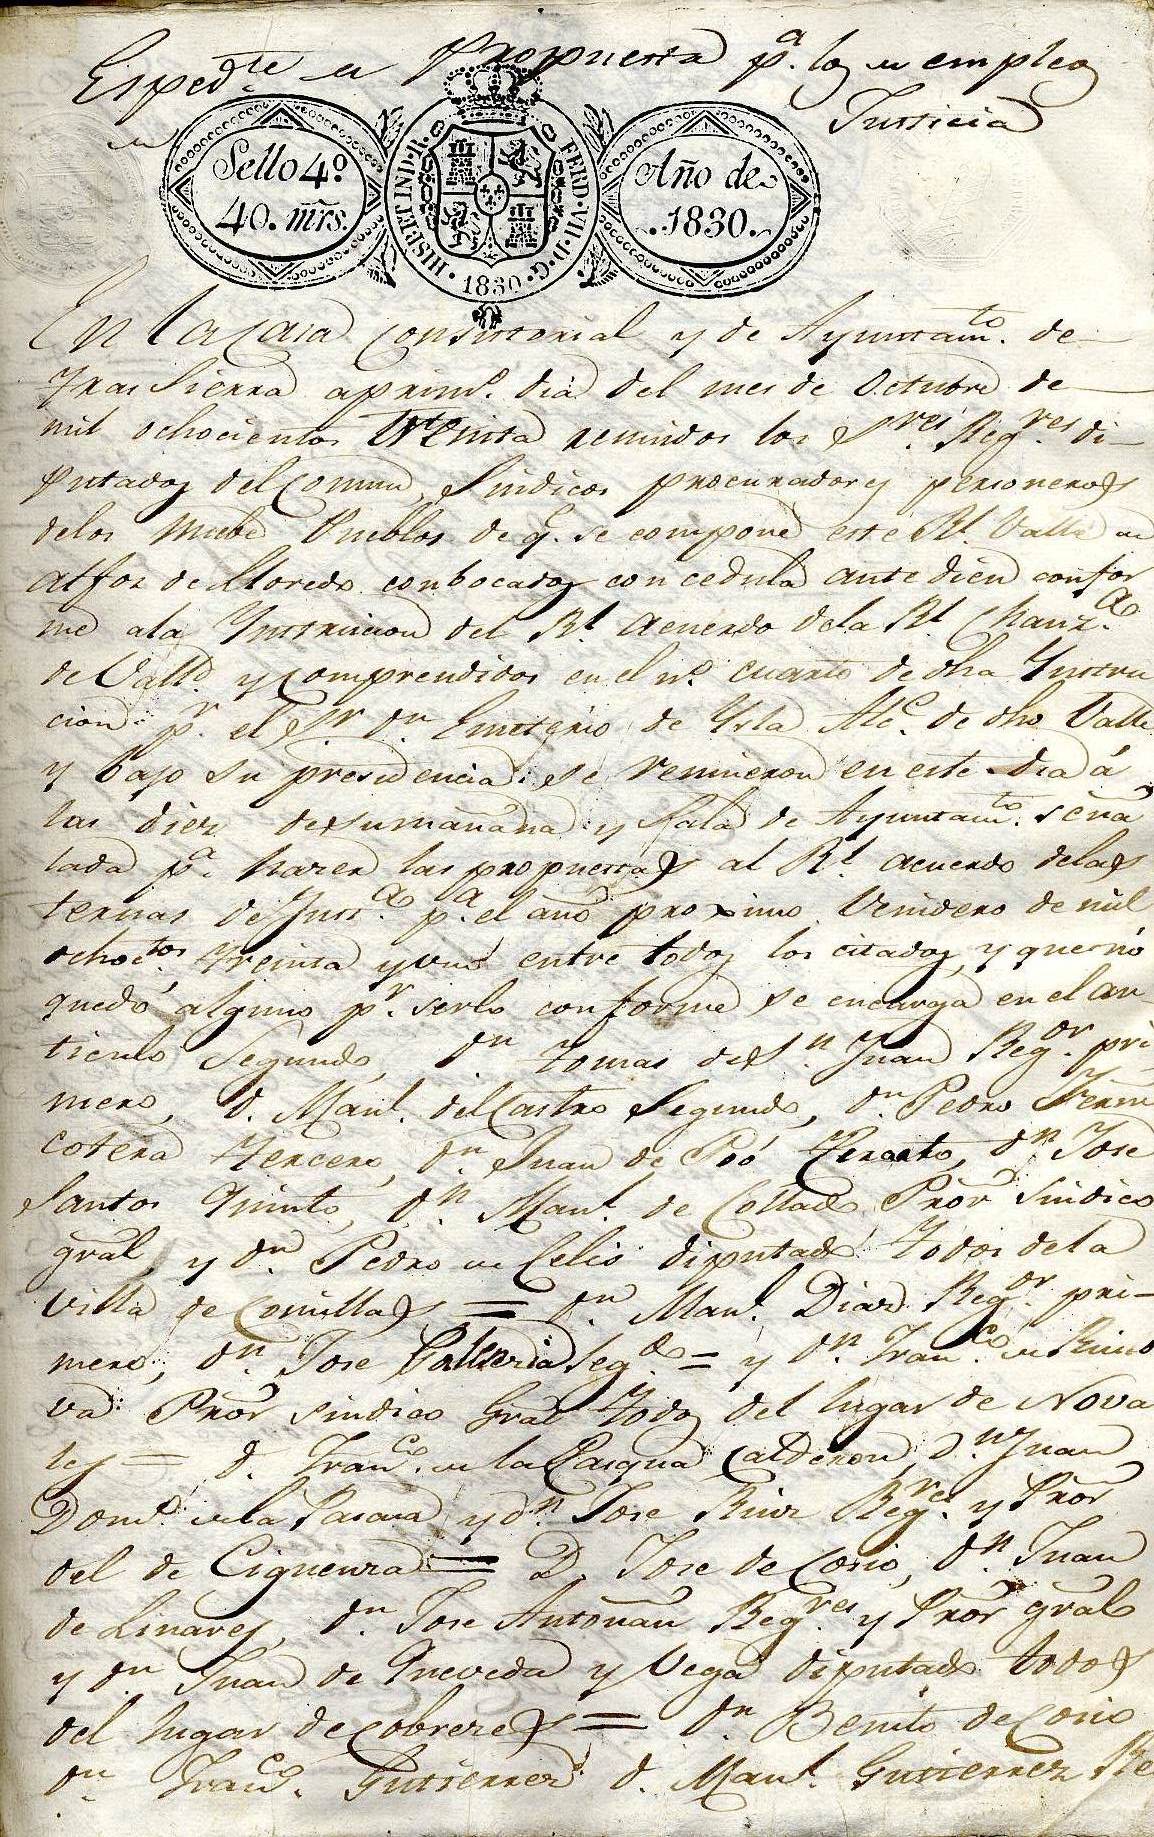 Espedte de Propuesta pa. los de empleos
de Justicia
Sello 4º.
40. mrs.
HISP. ET IND. R.
FERD. VII. D. G.
1830
Año de
1830.
En la casa Consistorial y de Ayuntamto. de
Tras Sierra a primo. dia del mes de Octubre de
mil ochocientos treinta reunidos los Sres. Regres. di-
putados del Comun, Sindicos procuradores y personeros
de los nuebe Pueblos de q. se compone este Rl. Valle de
Alfoz de Lloredo conbocados con cedula ante diem confor
me a la Ynstrucion del Rl. acuerdo de la Rl. Chanza.
de Valld. y comprendidos en el no. cuarto de dha Ynstru
cion pr. el Sr. Dn. Emeterio de Ysla Alce. de dho Valle
y bajo su presidencia: se reunieron en este dia á
las diez de su mañana y Sala de Ayuntamto. seña
lada pa. hazer las propuestas al Rl. acuerdo de las
ternas de Justa. pa. el año proximo venidero de mil
ochoctos. treinta y uno entre todos los citados, y que no
quedó alguno pr. serlo conforme se encarga en el ar
ticulo Segundo, Dn. Tomas de Sn. Juan Regor. pri
mero, D. Manl. del Castro Segundo, Dn. Pedro Fernz
cotera tercero, Dn. Juan de Poó Cuarto, Dn. Jose
Santos Quinto, Dn. Manl. de Collado Pror Sindico
gral, y Dn. Pedro de Celis diputado todos de la
villa de Comillas = Dn. Manl. Diaz Regor. pri-
mero, Dn. Jose Segdo = y Dn. Franco. de Ruilo
va Pror sindico Gral todos del lugar de Nova
les = D. Franco. de la Pasqua Calderon, Dn. Juan
Domo. de la Pascua y Dn. Jose Ruiz Regres. y Pror
del de Ciguenza = D. Jose de Cosio, Dn. Juan
de Linares, Dn. Jose Antonan Regres. y Pror gral
y Dn. Juan de Quevedo y Vega diputado todos
del lugar de Cobreces = Dn. Benito de Cosio
Dn. Franco. Gutierrez D. Manl. Gutierrez Re